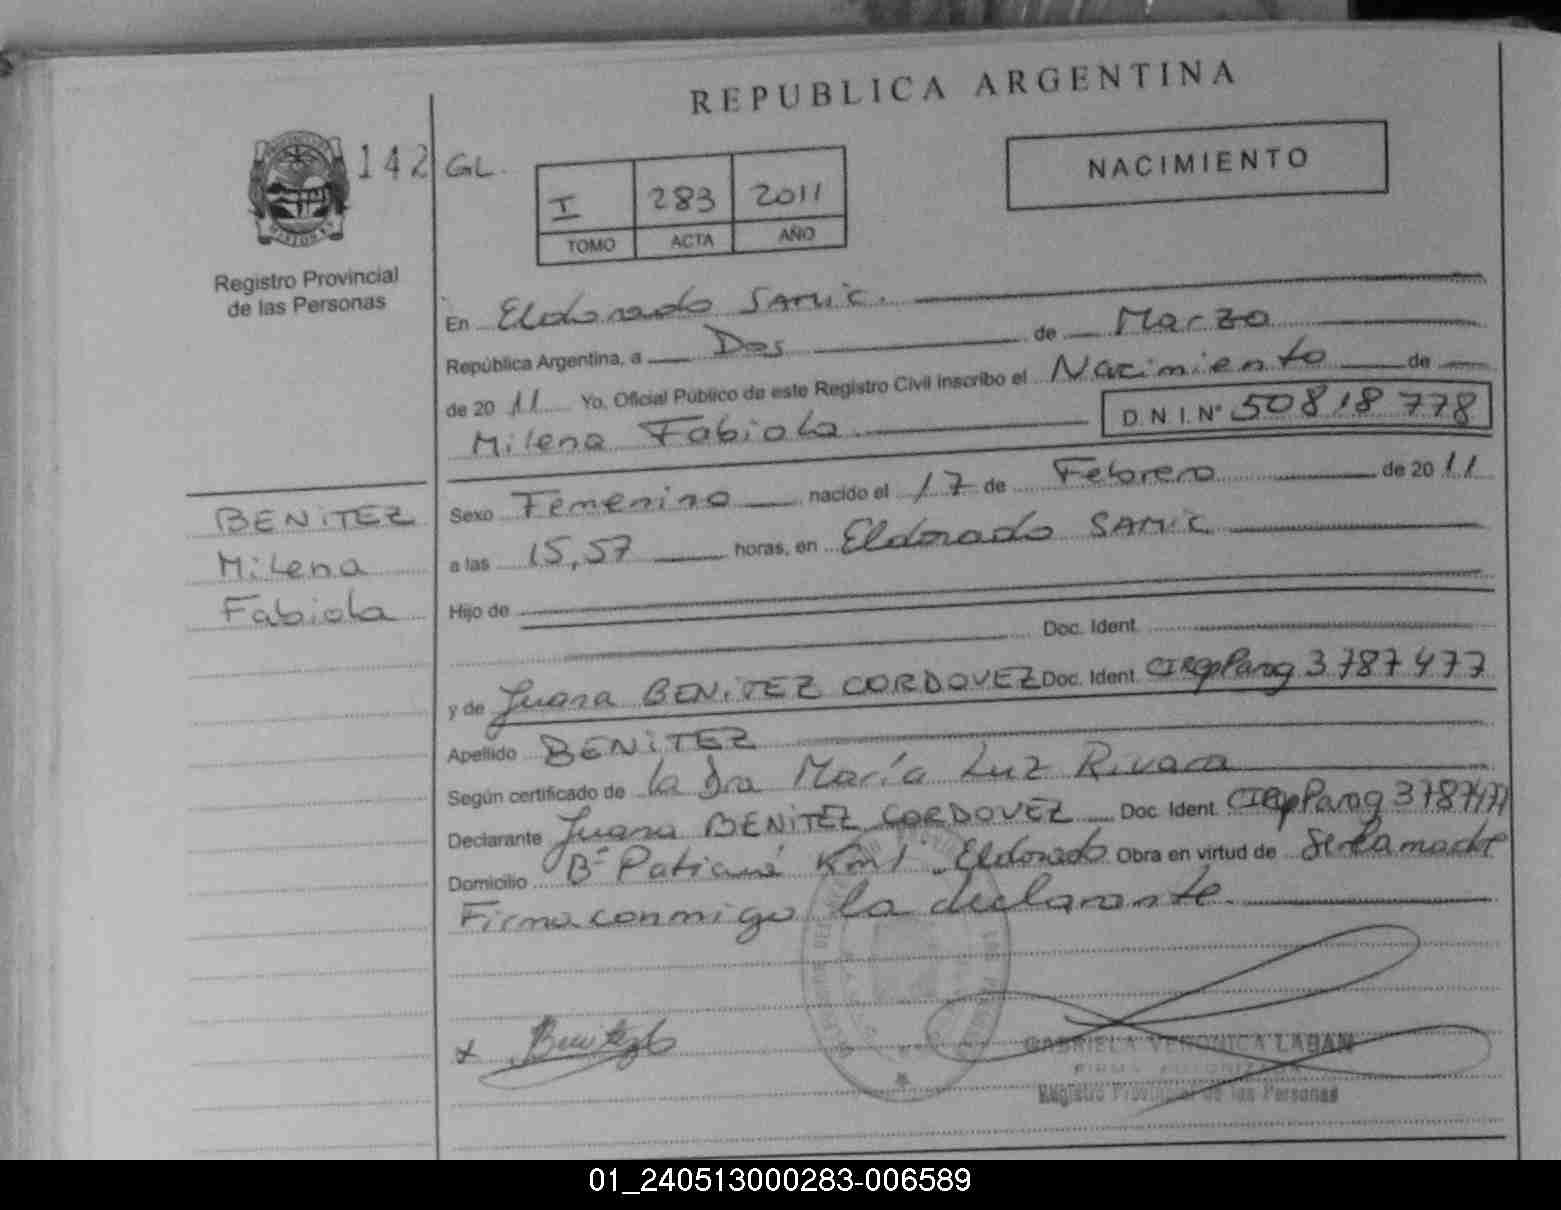 REPUBLICA ARGENTINA
142 GL.
NACIMIENTO
I 283 2011
TOMO ACTA AÑO
Registro Provincial
de las Personas
En Eldorado SAMIC.
República Argentina, a Dos de Marzo
de 20 11 Yo, Oficial Público de este Registro Civil inscribo el Nacimiento de
Milena Fabiola D.N.I.Nº 50818778
BENITEZ
Milena
Fabiola
Sexo Femenino nacido el 17 de Febrero de 20 11
a las 15,57 horas, en Eldorado SAMIC
Hijo de
Doc. Ident.
y de Juana BENITEZ CORDOVEZ Doc. Ident. 3787477
Apellido BENITEZ
Según certificado de la Dra María Luz Rivara
Declarante Juana BENITEZ CORDOVEZ Doc. Ident. 3787477
Domicilio Bº Km 1 Eldorado Obra en virtud de Ser la madre
Firma conmigo la declarante.
x Benitez
GABRIELA VERONICA LABAN
FIRMA AUTORIZADA
Registro Provincial de las Personas
01_240513000283-006589